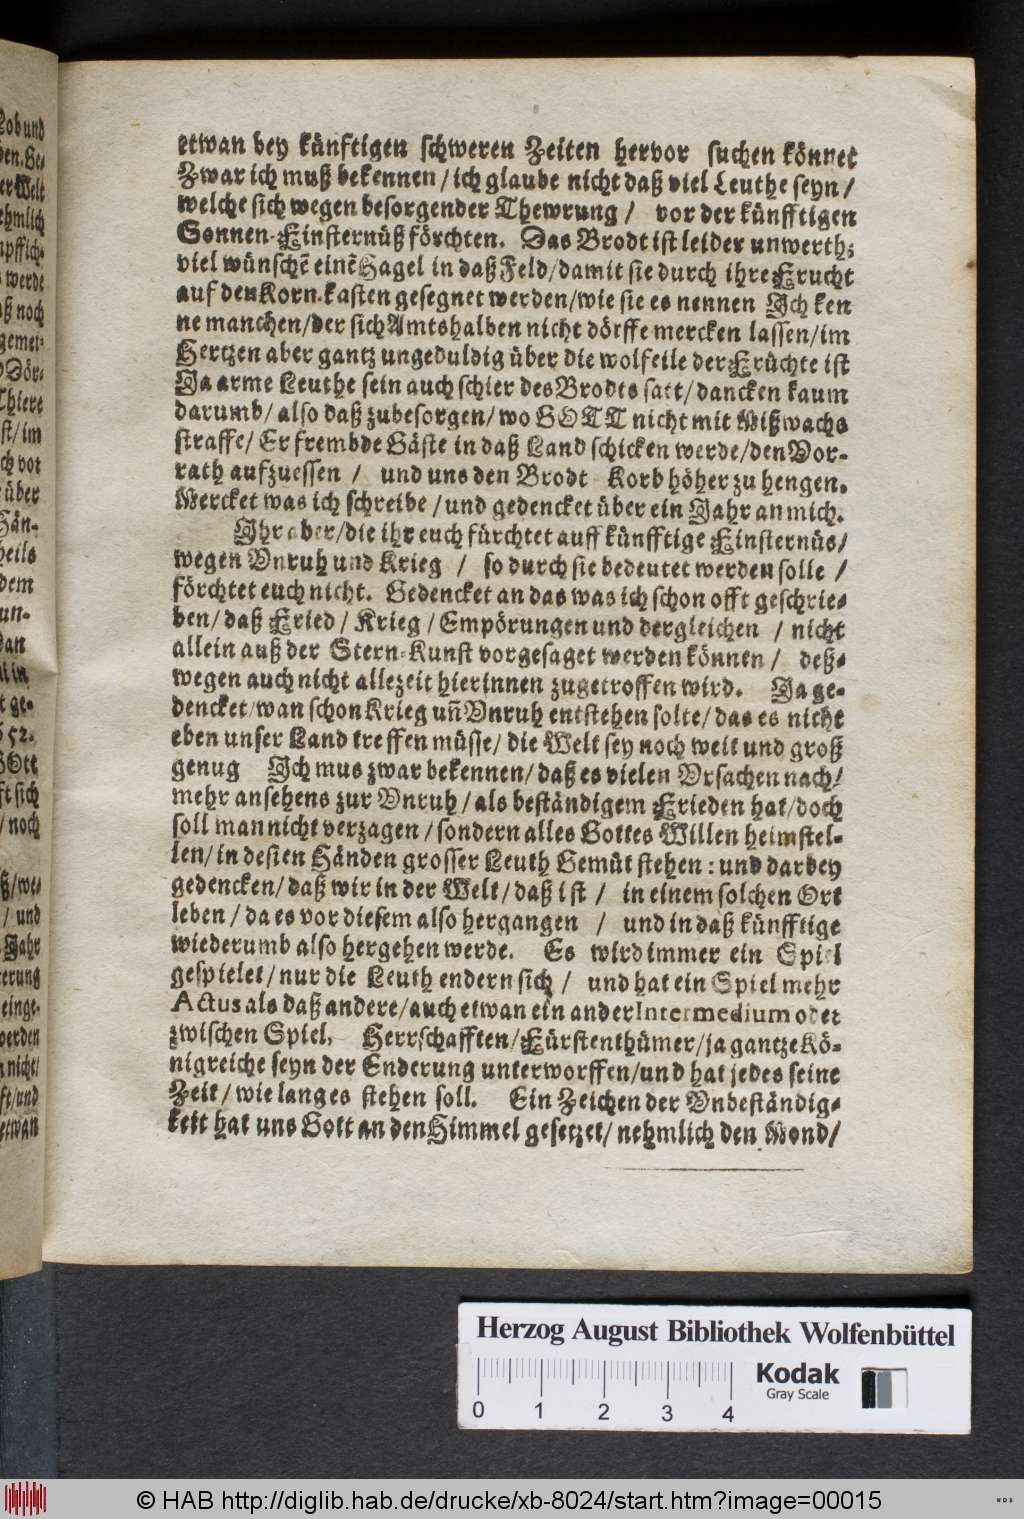 etwan bey künftigen schweren Zeiten hervor suchen könnet
Zwar ich muß bekennen / ich glaube nicht daß viel Leuthe seyn /
welche sich wegen besorgender Thewrung / vor der künfftigen
Sonnen-Finsternüß förchten. Das Brodt ist leider unwerth;
viel wünschẽ einẽ Hagel in daß Feld / damit sie durch ihre Frucht
auf den Korn-kasten gesegnet werden / wie sie es nennen Ich ken
ne manchen / der sich Amts halben nicht dörffe mercken lassen / im
Hertzen aber gantz ungeduldig über die wolfeile der Früchte ist
Ja arme Leuthe sein auch schier des Brodts satt / dancken kaum
darumb / also daß zubesorgen / wo GOTT nicht mit Mißwachs
straffe / Er frembde Gäste in daß Land schicken werde / den Vor-
rath aufzuessen / und uns den Brodt Korb höher zu hengen.
Mercket was ich schreibe / und gedencket über ein Jahr an mich.
Ihr aber / die ihr euch fürchtet auff künfftige Finsternüs /
wegen Vnruh und Krieg / so durch sie bedeutet werden solle /
förchtet euch nicht. Gedencket an das was ich schon offt geschrie-
ben / daß Fried / Krieg / Empörungen und dergleichen / nicht
allein auß der Stern-Kunst vorgesaget werden können / deß-
wegen auch nicht allezeit hierinnen zugetroffen wird. Ja ge-
dencket / wan schon Krieg uñ Vnruh entstehen solte / das es nicht
eben unser Land treffen müsse / die Welt sey noch weit und groß
genug Ich mus zwar bekennen / daß es vielen Vrsachen nach /
mehr ansehens zur Vnruh / als beständigem Frieden hat / doch
soll man nicht verzagen / sondern alles Gottes Willen heimstel-
len / in desten Händen grosser Leuth Gemüt stehen : und darbey
gedencken / daß wir in der Welt / daß ist / in einem solchen Ort
leben / da es vor diesem also hergangen / und in daß künfftige
wiederumb also hergehen werde. Es wird immer ein Spiel
gespielet / nur die Leuth endern sich / und hat ein Spiel mehr
Actus als daß andere / auch etwan ein ander Intermedium oder
zwischen Spiel. Herrschafften / Fürstenthümer / ja gantze Kö-
nigreiche seyn der Enderung unterworffen / und hat jedes seine
Zeit / wie lang es stehen soll. Ein Zeichen der Vnbeständig-
keit hat uns Gott an den Himmel gesetzet / nehmlich den Mond /
Herzog August Bibliothek Wolfenbüttel
Kodak
Gray Scale
0 1 2 3 4
© HAB http://diglib.hab.de/drucke/xb-8024/start.htm?image=00015